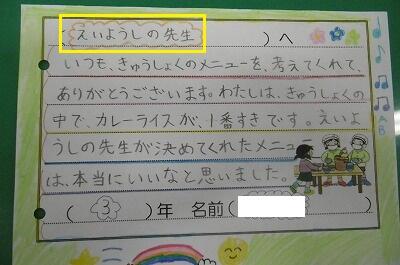 (えいようしの先生)へ
いつも、きゅうしょくのメニューを、考えてくれて、
ありがとうございます。わたしは、きゅうしょくの
中で、カレーライスが、1番すきです。えいよ
うしの先生が決めてくれたメニュー
は、本当にいいなと思いました。
(3)年 名前( )